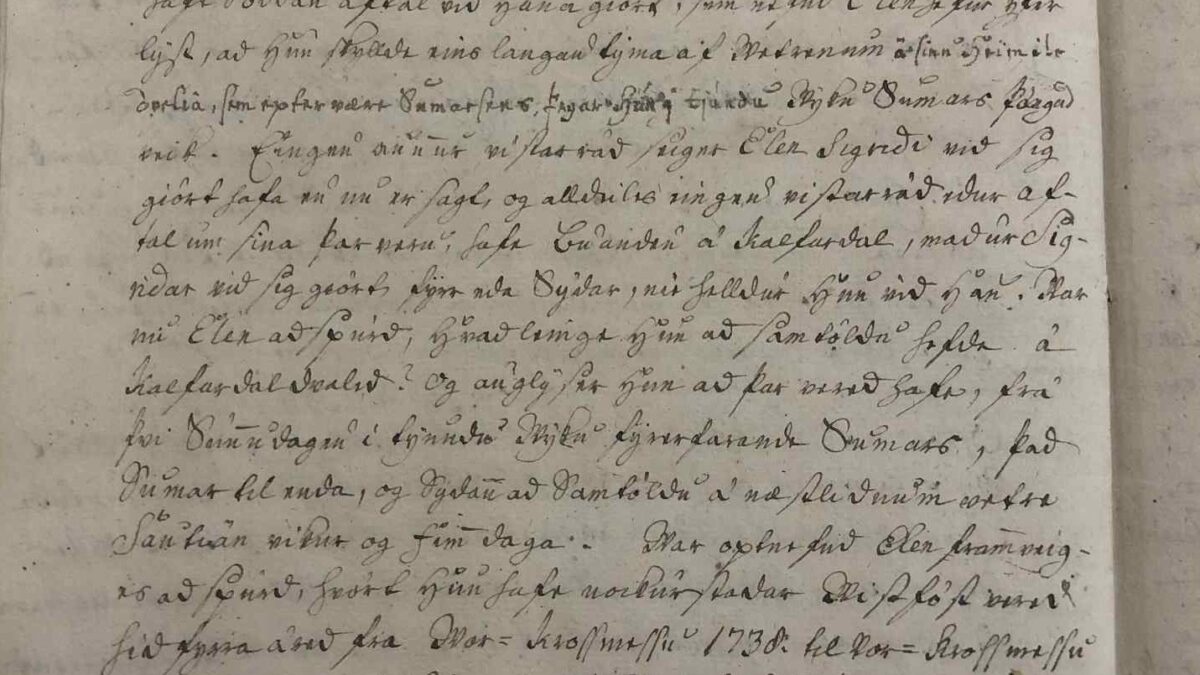 haft soddan aftal vid Hana giört, sem nefnd Elen hefur yfer
lyst, ad Hun skyllde eins langan tyma af Vetrenum á sinu Heimile
dvelia, sem epter være Sumarsens, þegar Hun i tiundu Viku Sumars þángad
veik. Eingen annur vistarrád seiger Elen Sigridi vid sig
giört hafa en nu er sagt, og alldeiles eingen vistarrád edur af-
tal um sina þarveru, hafe Buanden á Kalfardal, madur Sig-
ridar vid sig giört, fyrr eda Sydar, nie helldur Hun vid Han. Var
nu Elen adspurd, hvad leinge Hun ad samtöldu hefde á
Kalfardal dvalid? Og auglyser Hun ad þar vered hafe, frá
þvi Sunnudagen i tyundu Vyku fyrerfarande Sumars, þad
Sumar til enda, og Sydann ad Samtöldu á næstlidnum vetre
Sautián vikur og fimm daga. Var optnefnd Elen frammveig-
es ad spurd, hvört Hun hafe nockurstadar Vistföst vered
hid fyrra áred fra Vor= Krossmessu 1738. til Vor= Krossmessu